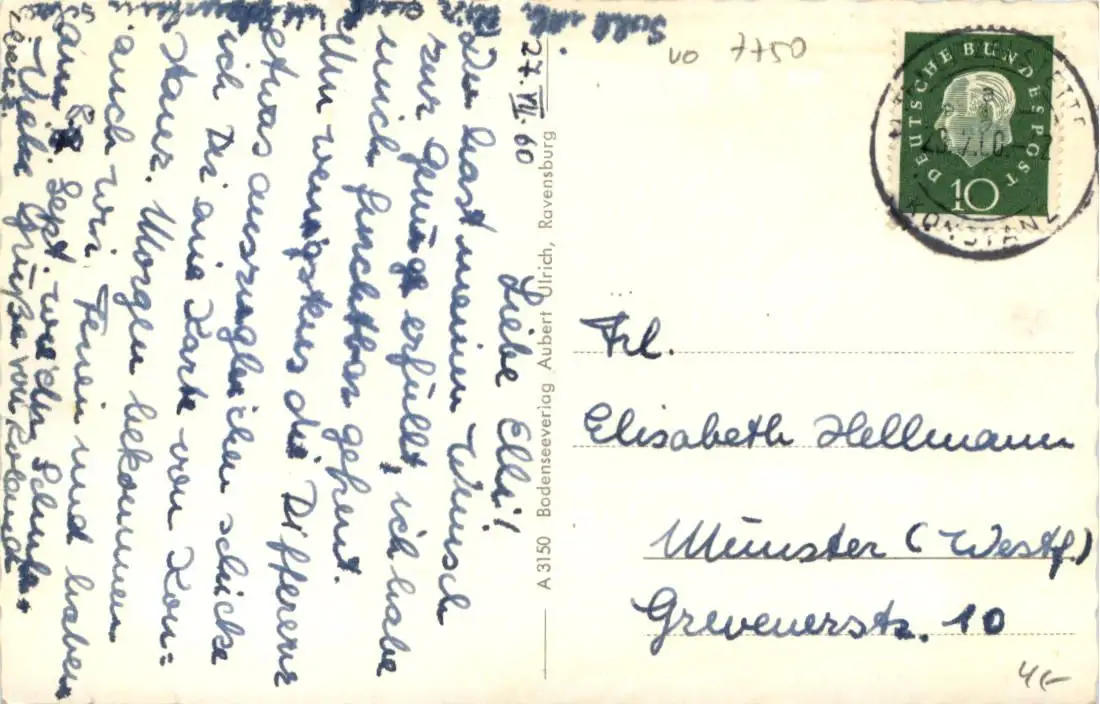 27. VII. 60
Liebe Elli!
Du hast meinen Wunsch
zur Genüge erfüllt, ich habe
mich furchtbar gefreut.
Um wenigstens die Differenz
etwas auszugleichen schicke
ich Dir eine Karte von Kon=
stanz. Morgen bekommen
auch wir Ferien und haben
am 8. Sept. wieder Schule.
Liebe Grüße von Roland
A 3150 Bodenseeverlag Aubert Ulrich, Ravensburg
vo 7750
DEUTSCHE BUNDESPOST
10
KONSTANZ
Frl.
Elisabeth Hellmann
Münster (Westf.)
Grevenerstr. 10
4,-